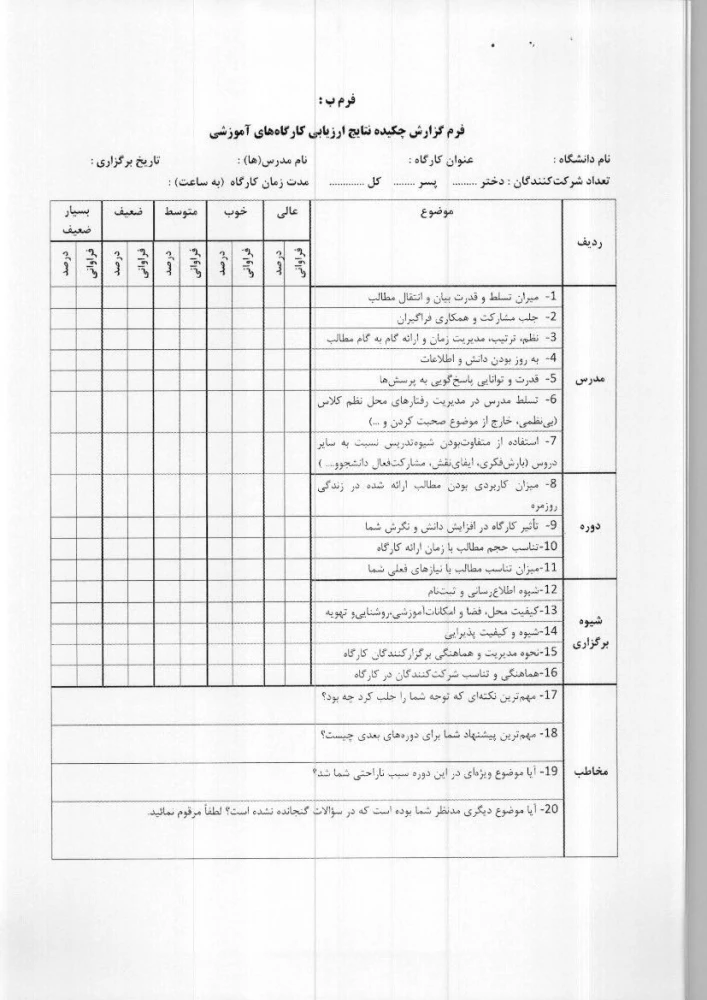 فرم ب :
فرم گزارش چکیده نتایج ارزیابی کارگاه‌های آموزشی
نام دانشگاه : عنوان کارگاه : نام مدرس(ها) : تاریخ برگزاری :
تعداد شرکت‌کنندگان : دختر ......... پسر ........ کل ............ مدت زمان کارگاه (به ساعت) :
ردیف موضوع عالی خوب متوسط ضعیف بسیار ضعیف
فراوانی درصد فراوانی درصد فراوانی درصد فراوانی درصد فراوانی درصد
مدرس
1- میزان تسلط و قدرت بیان و انتقال مطالب
2- جلب مشارکت و همکاری فراگیران
3- نظم، ترتیب، مدیریت زمان و ارائه گام به گام مطالب
4- به روز بودن دانش و اطلاعات
5- قدرت و توانایی پاسخ‌گویی به پرسش‌ها
6- تسلط مدرس در مدیریت رفتارهای محل نظم کلاس
(بی‌نظمی، خارج از موضوع صحبت کردن و ...)
7- استفاده از متفاوت‌بودن شیوه‌تدریس نسبت به سایر
دروس (بارش‌فکری، ایفای‌نقش، مشارکت‌فعال دانشجوو... )
دوره
8- میزان کاربردی بودن مطالب ارائه شده در زندگی
روزمره
9- تأثیر کارگاه در افزایش دانش و نگرش شما
10-تناسب حجم مطالب با زمان ارائه کارگاه
11-میزان تناسب مطالب با نیازهای فعلی شما
شیوه
برگزاری
12-شیوه اطلاع‌رسانی و ثبت‌نام
13-کیفیت محل، فضا و امکانات‌آموزشی،روشنایی‌و تهویه
14-شیوه و کیفیت پذیرایی
15-نحوه مدیریت و هماهنگی برگزارکنندگان کارگاه
16-هماهنگی و تناسب شرکت‌کنندگان در کارگاه
مخاطب
17- مهم‌ترین نکته‌ای که توجه شما را جلب کرد چه بود؟
18- مهم‌ترین پیشنهاد شما برای دوره‌های بعدی چیست؟
19- آیا موضوع ویژه‌ای در این دوره سبب ناراحتی شما شد؟
20- آیا موضوع دیگری مدنظر شما بوده است که در سؤالات گنجانده نشده است؟ لطفاً مرقوم نمائید.